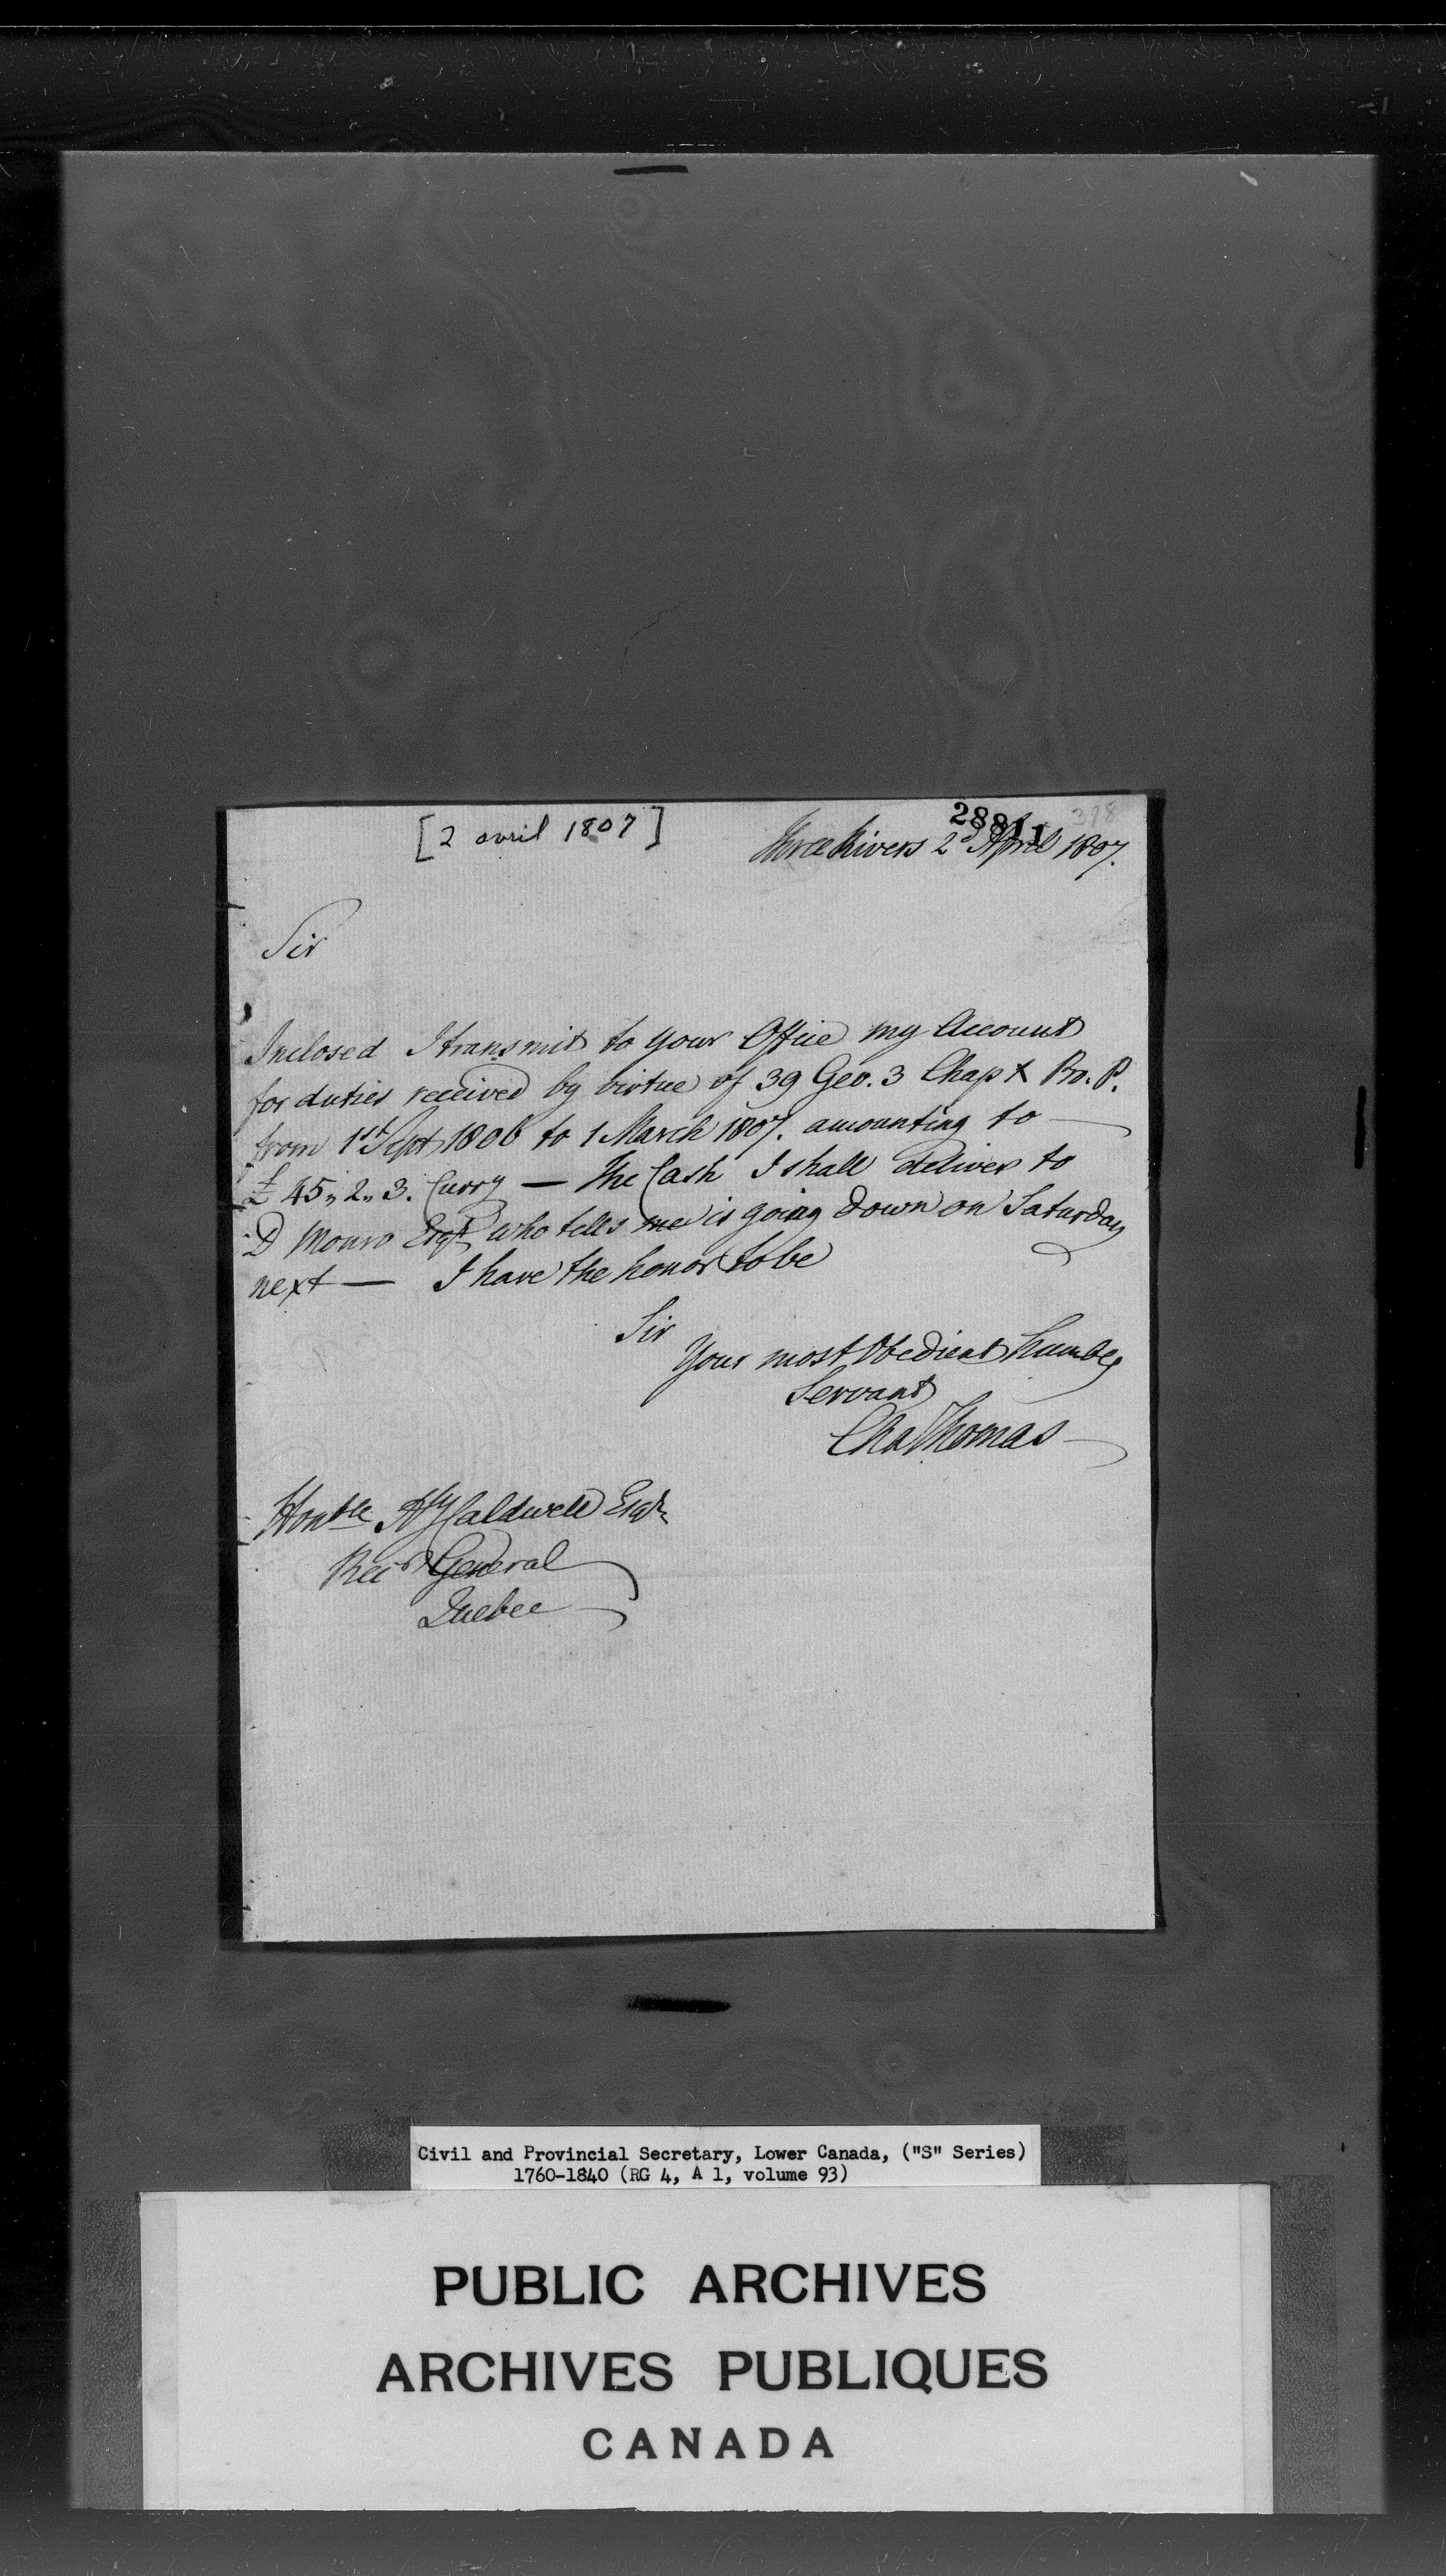 [2 avril 1807]
28811 378
Three Rivers 2d April 1807.
Sir
Inclosed I transmit to your Office my Account
for duties received by virtue of 39 Geo. 3 Chap X Pro. P.
from 1st Sept 1806 to 1 March 1807. amounting to —
£ 45,, 2,, 3. Curry — The Cash I shall deliver to
D Monro Esqr who tells me is going down on Saturday
next — I have the honor to be
Sir
Your most Obedient humble
Servant
Cha Thomas
Honble Hy Caldwell Esqr
Recr General
Quebec
Civil and Provincial Secretary, Lower Canada, ("S" Series)
1760-1840 (RG 4, A 1, volume 93)
PUBLIC ARCHIVES
ARCHIVES PUBLIQUES
CANADA